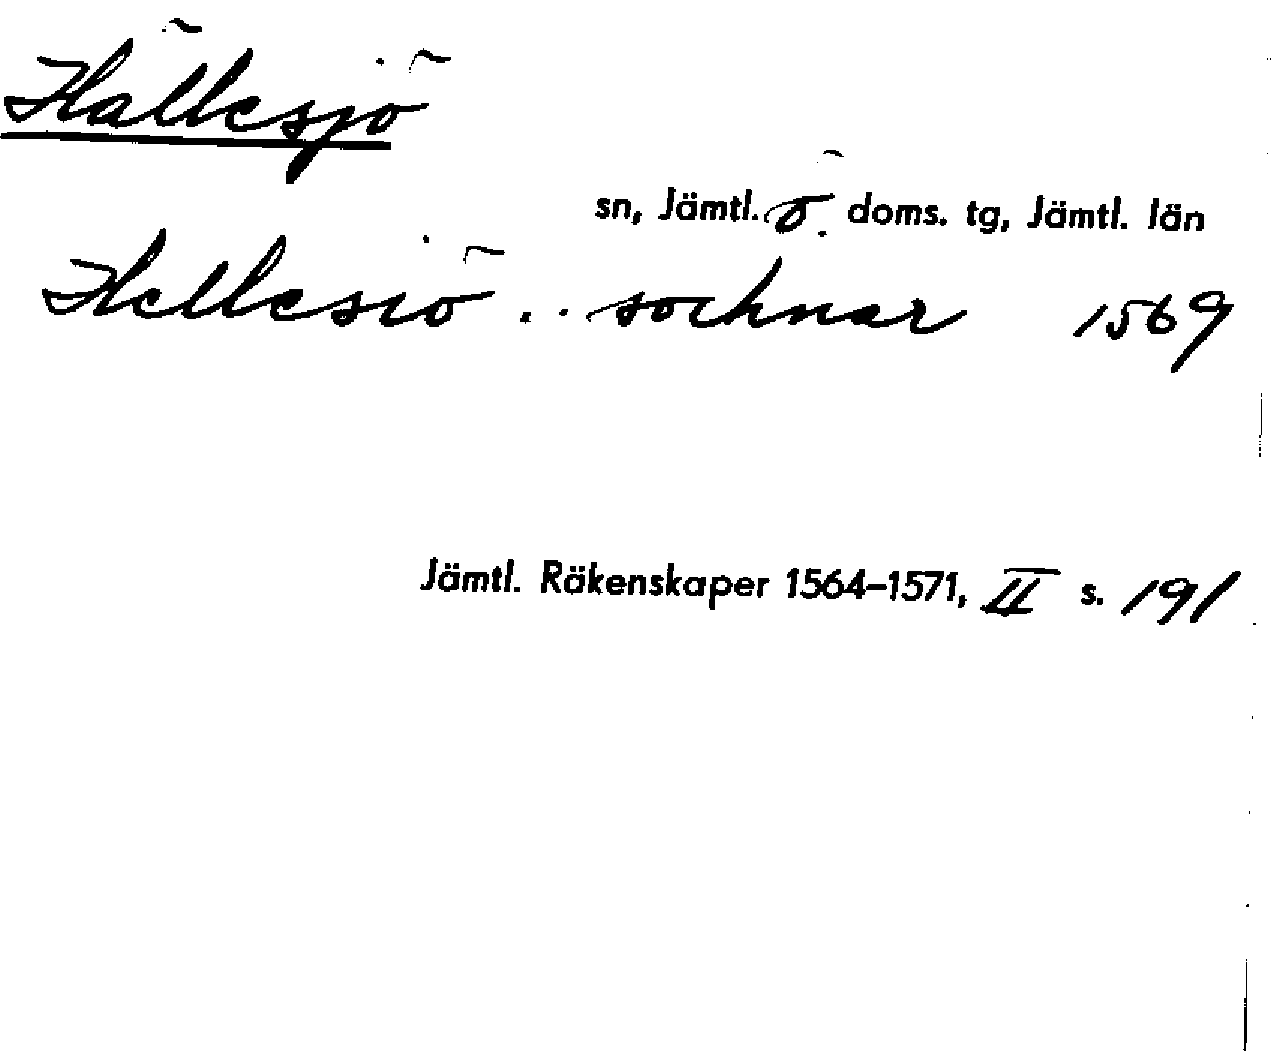 Hällesjö
sn, Jämtl. ö. doms. tg, Jämtl. län
Hellesiö .. sochnar 1569
Jämtl. Räkenskaper 1564–1571, II s. 191